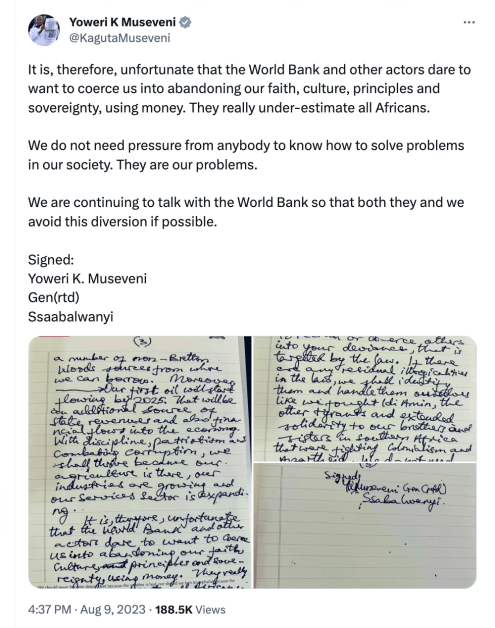 Yoweri K Museveni
@KagutaMuseveni
It is, therefore, unfortunate that the World Bank and other actors dare to
want to coerce us into abandoning our faith, culture, principles and
sovereignty, using money. They really under-estimate all Africans.
We do not need pressure from anybody to know how to solve problems
in our society. They are our problems.
We are continuing to talk with the World Bank so that both they and we
avoid this diversion if possible.
Signed:
Yoweri K. Museveni
Gen(rtd)
Ssaabalwanyi
(3)
a number of non-Bretton
Woods sources from where
we can borrow. Moreover
our first oil will start
flowing by 2025. That will be
an additional source of
state revenues and also fina
ncial flows into the economy.
With discipline, patriotism and
combating corruption, we
shall thrive because our
agriculture is there, our
industries are growing and
our services sector is expandi-
ng.
It is, therefore, unfortunate
that the World Bank and other
actors dare to want to coerce
us into abandoning our faith,
culture, and principles and sove-
reignty, using money. They really
or coerce others
into your deviance, that is
targeted by the law. If there
are any residual illogicalities
in the law, we shall identify
them and handle them ourselves
like we fought Idi Amin, the
other tyrants and extended
solidarity to our brothers and
sisters in Southern Africa
that were fighting Colonialism and
Signed
Museveni Gen (rtd)
Ssabalwanyi.
4:37 PM · Aug 9, 2023 · 188.5K Views